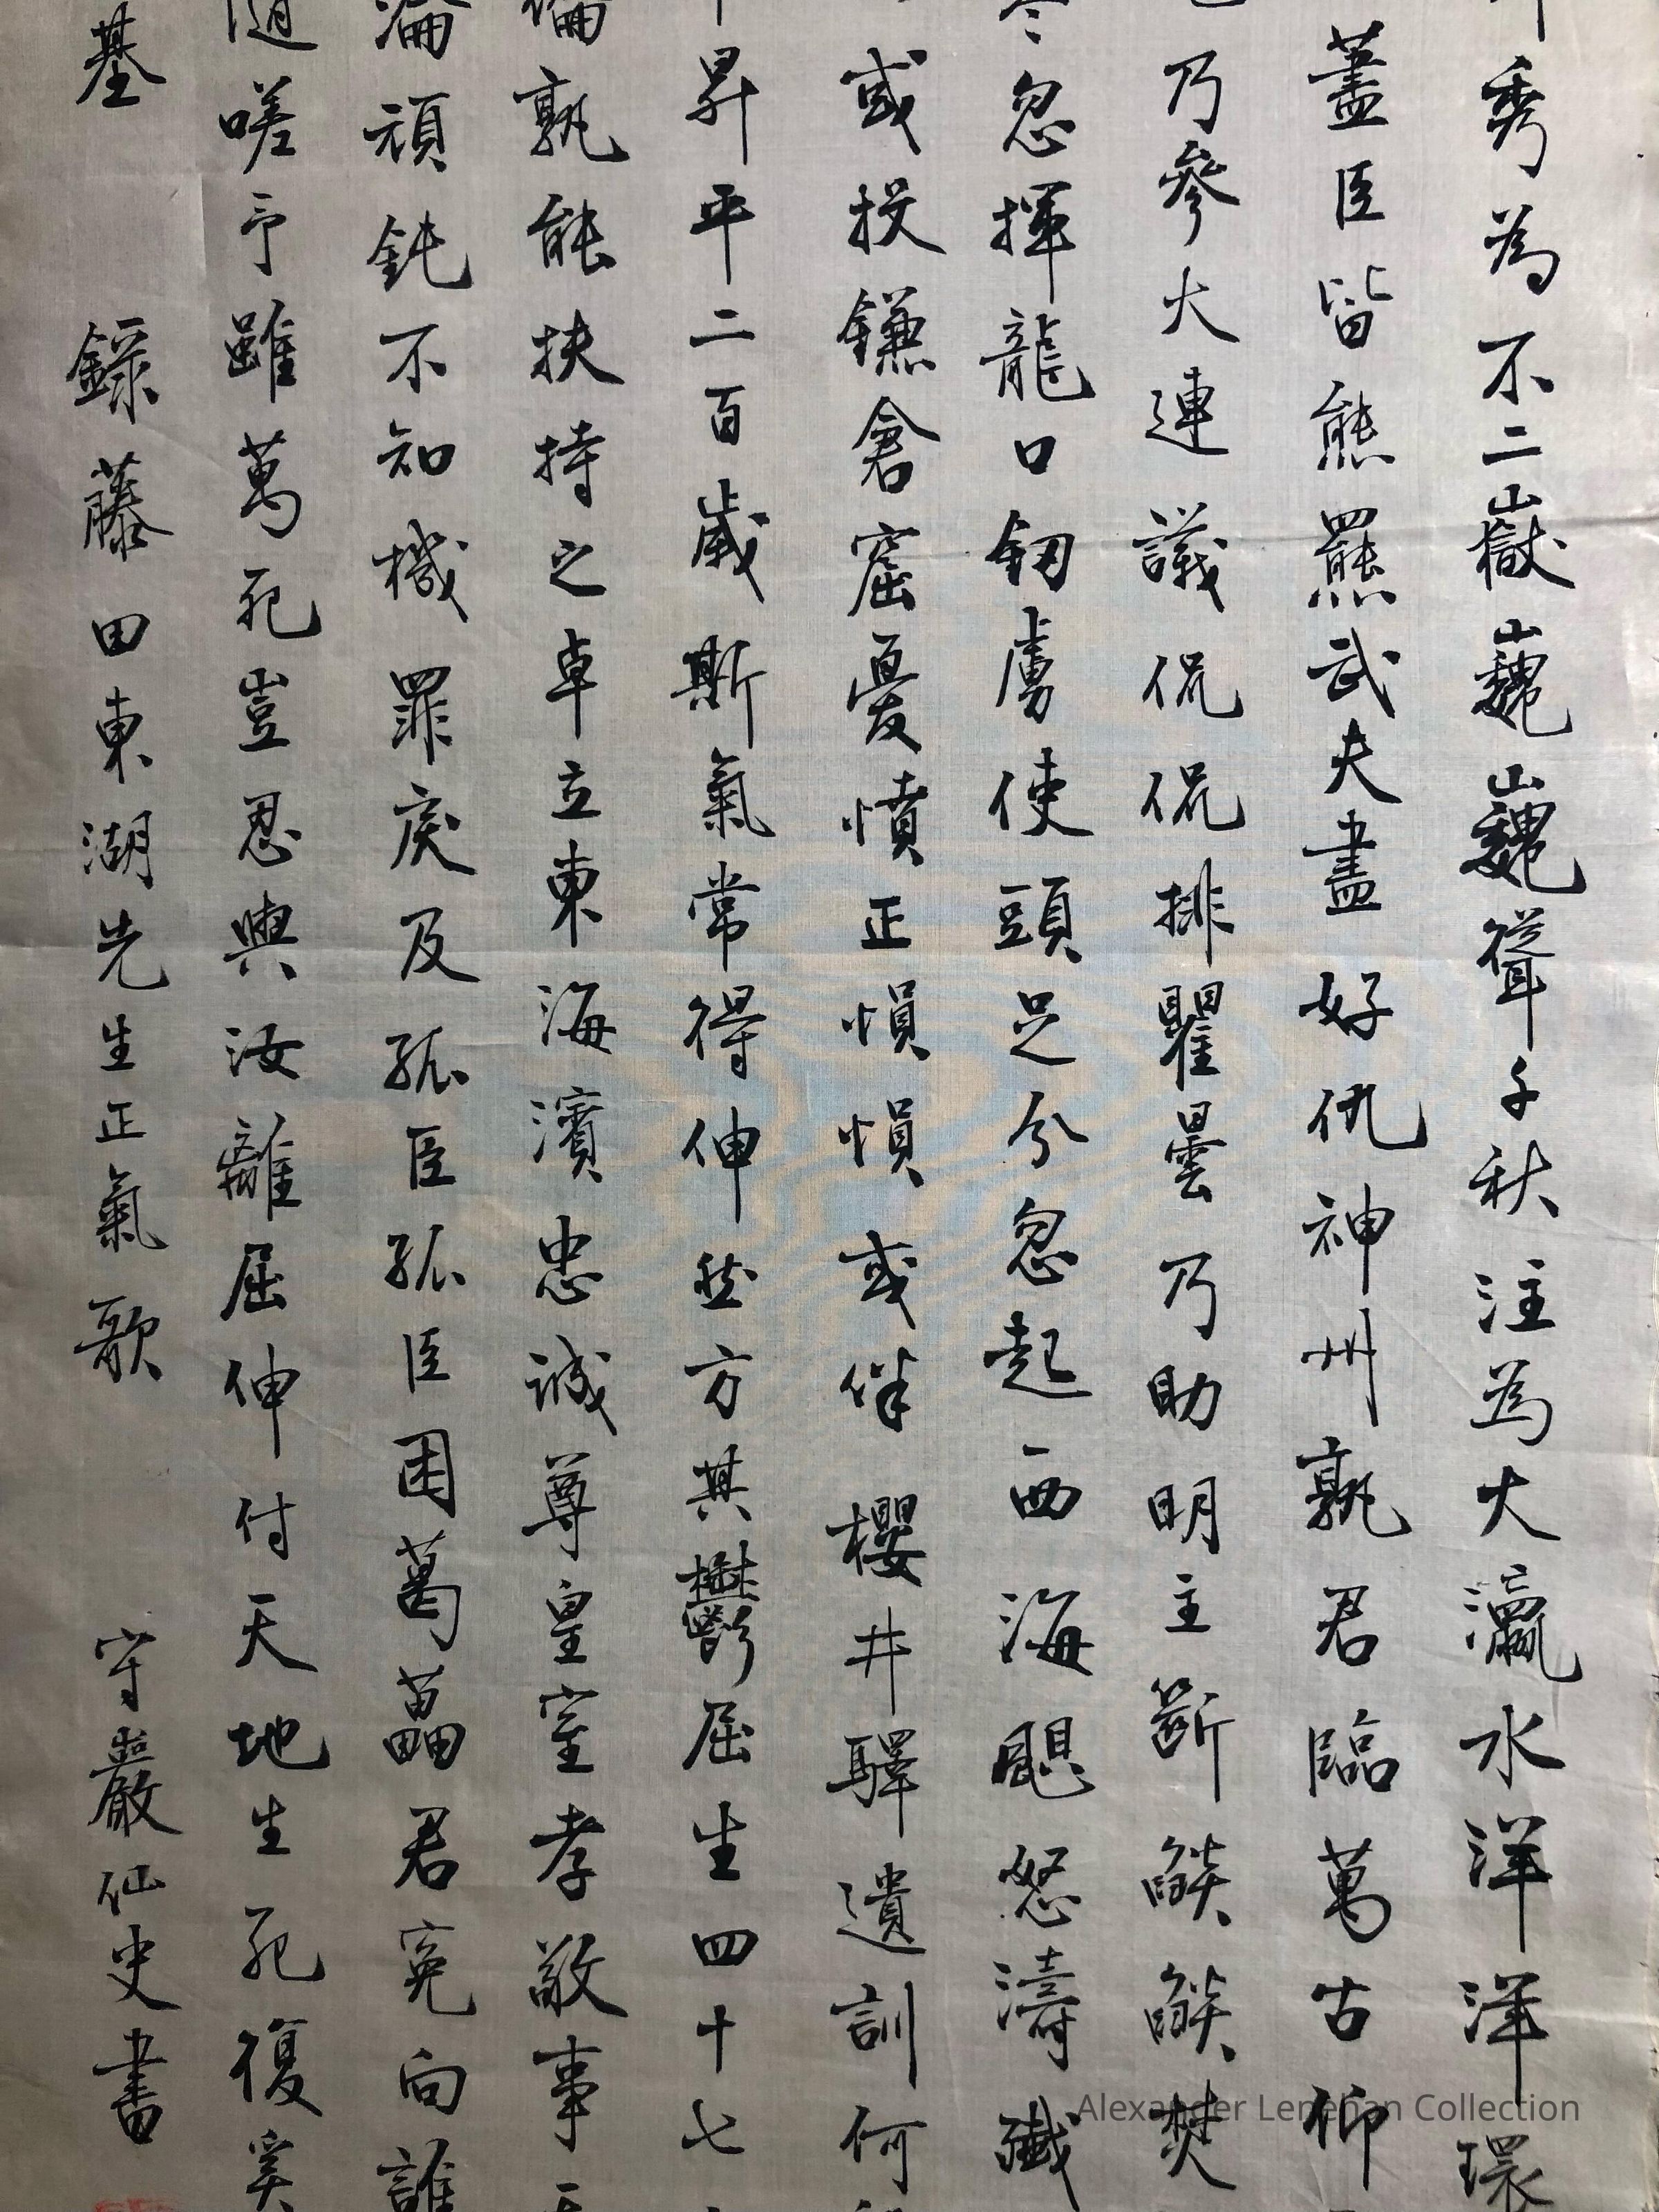 秀為不二嶽巍巍聳千秋注為大瀛水洋洋環
藎臣皆熊羆武夫盡好仇神州孰君臨萬古仰
乃參大連議侃侃排瞿曇乃助明主斷燄燄焚
忽揮龍口釰虜使頭足分忽起西海颶怒濤殲
或投鎌倉窟憂憤正愪愪或伴櫻井驛遺訓何
昇平二百歲斯氣常得伸然方其鬱屈生四十七
倫孰能扶持之卓立東海濱忠誠尊皇室孝敬事天
淪頑鈍不知機罪戾及孤臣孤臣困葛藟君冤向誰
随嗟予雖萬死豈忍與汝離屈伸付天地生死復奚
基
錄藤田東湖先生正氣歌
守嚴仙史書
Alexander Lenehan Collection